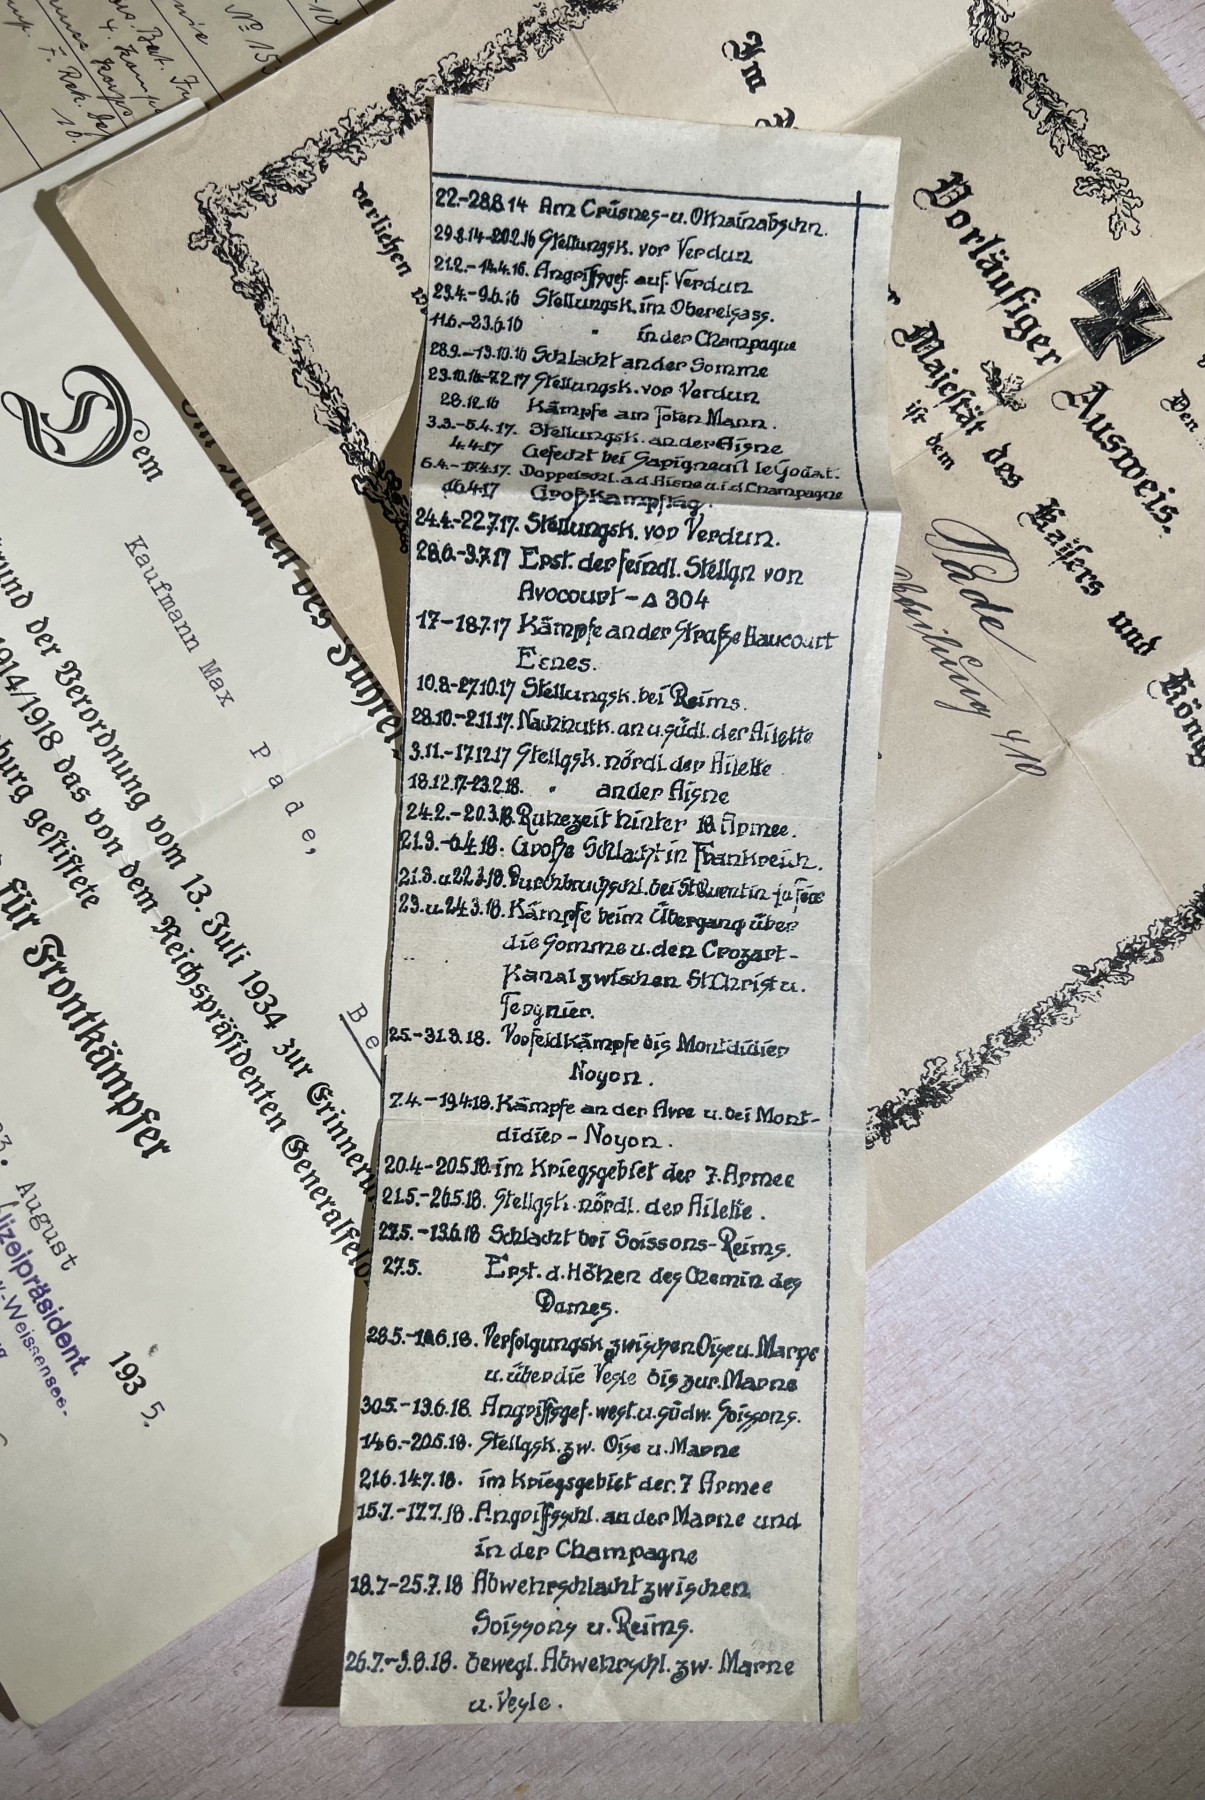 22.-28.8.14 Am Crusnes- u. Othainabschn.
29.8.14-20.2.16 Stellungsk. vor Verdun
21.2.-14.4.16. Angriffsgef. auf Verdun
23.4.-9.6.16 Stellungsk. im Oberelsass.
11.6.-23.6.16 " in der Champagne
28.9.-19.10.16 Schlacht an der Somme
23.10.16-7.2.17 Stellungsk. vor Verdun
28.12.16 Kämpfe am Toten Mann.
3.3.-5.4.17. Stellungsk. an der Aisne
4.4.17 Gefecht bei Sapigneuil le Godat.
6.4.- 17.4.17. Doppelschl. a.d. Aisne u. i.d. Champagne
16.4.17 Großkampftag.
24.4.-22.7.17. Stellungsk. vor Verdun.
28.6.-3.7.17 Erst. der feindl. Stellgn von
Avocourt - △ 304
17-18.7.17 Kämpfe an der Straße Haucourt
Esnes.
10.8-27.10.17 Stellungsk. bei Reims.
28.10.-2.11.17. Nachhutk. an u. südl. der Ailette
3.11.-17.12.17 Stellgsk. nördl. der Ailette
18.12.17-23.2.18. " an der Aisne
24.2.-20.3.18. Ruhezeit hinter 18 Armee.
21.3.-6.4.18. Große Schlacht in Frankreich.
21.3. u. 22.3.18. Durchbruchschl. bei St Quentin
23. u. 24.3.18. Kämpfe beim Übergang über
die Somme u. den Crozart-
Kanal zwischen St Christ u.
Tergnier.
25.-31.3.18. Vorfeldkämpfe bis Montdidier
Noyon.
7.4.-19.4.18. Kämpfe an der Avre u. bei Mont-
didier - Noyon.
20.4-20.5.18. im Kriegsgebiet der 7. Armee
21.5.-26.5.18. Stellgsk. nördl. der Ailette.
27.5.-13.6.18 Schlacht bei Soissons-Reims.
27.5. Erst. d. Höhen des Chemin des
Dames.
28.5.- 6.18. Verfolgungsk. zwischen Oise u. Marne
u. über die Vesle bis zur Marne
30.5.-13.6.18. Angriffsgef. westl. u. südw. Soissons.
14.6.-20.6.18. Stellgsk. zw. Oise u. Marne
21.6. 14.7.18. im Kriegsgebiet der 7 Armee
15.7.-17.7.18. Angriffsschl. an der Marne und
in der Champagne
18.7-25.7.18 Abwehrschlacht zwischen
Soissons u. Reims.
26.7.-3.8.18. bewegl. Abwehrschl. zw. Marne
u. Vesle.
Im
verliehen
Vorläufiger Ausweis.
Majestät des Kaisers und König
ist dem
Den
Pade
Im Namen des Führers
Dem
Kaufmann Max Pade,
Be
rund der Verordnung vom 13. Juli 1934 zur Erinneru
1914/1918 das von dem Reichspräsidenten Generalfeld
burg gestiftete
für Frontkämpfer
3. August 1935.
lizeipräsident.
-Weissensee-
No 15